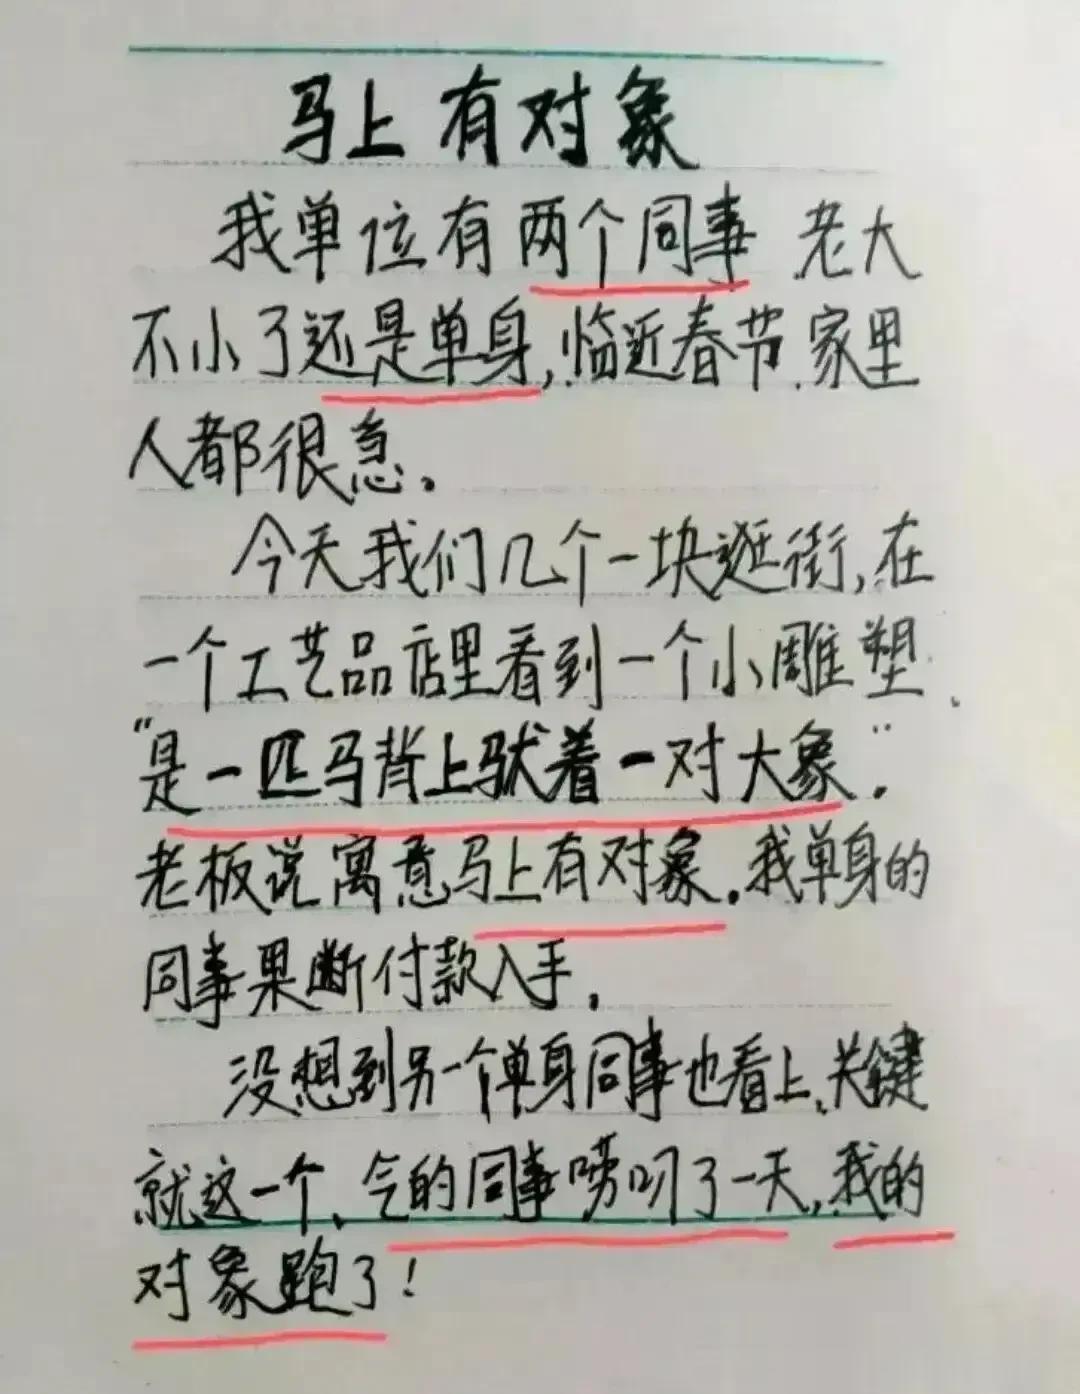 马上有对象
我单位有两个同事 老大
不小了还是单身,临近春节、家里
人都很急。
今天我们几个一块逛街,在
一个工艺品店里看到一个小雕塑、
“是一匹马背上驮着一对大象”.
老板说寓意马上有对象.我单身的
同事果断付款入手.
没想到另一个单身同事也看上、关键
就这一个、气的同事唠叨了一天,我的
对象跑了!